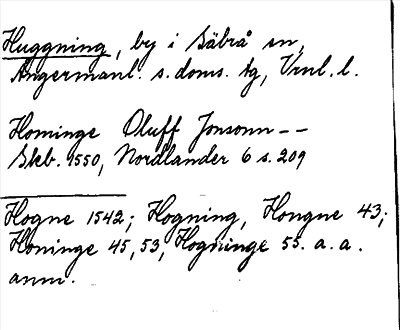 Huggning, by i Säbrå sn,
Ångermanl. s. doms. tg, Vrnl. l.
Hominge Oluff Jonsonn --
Skb. 1550, Nordlander 6 s. 209
Hogne 1542; Hogning, Hongne 43;
Honinge 45, 53, Hogninge 55. a. a.
anm.